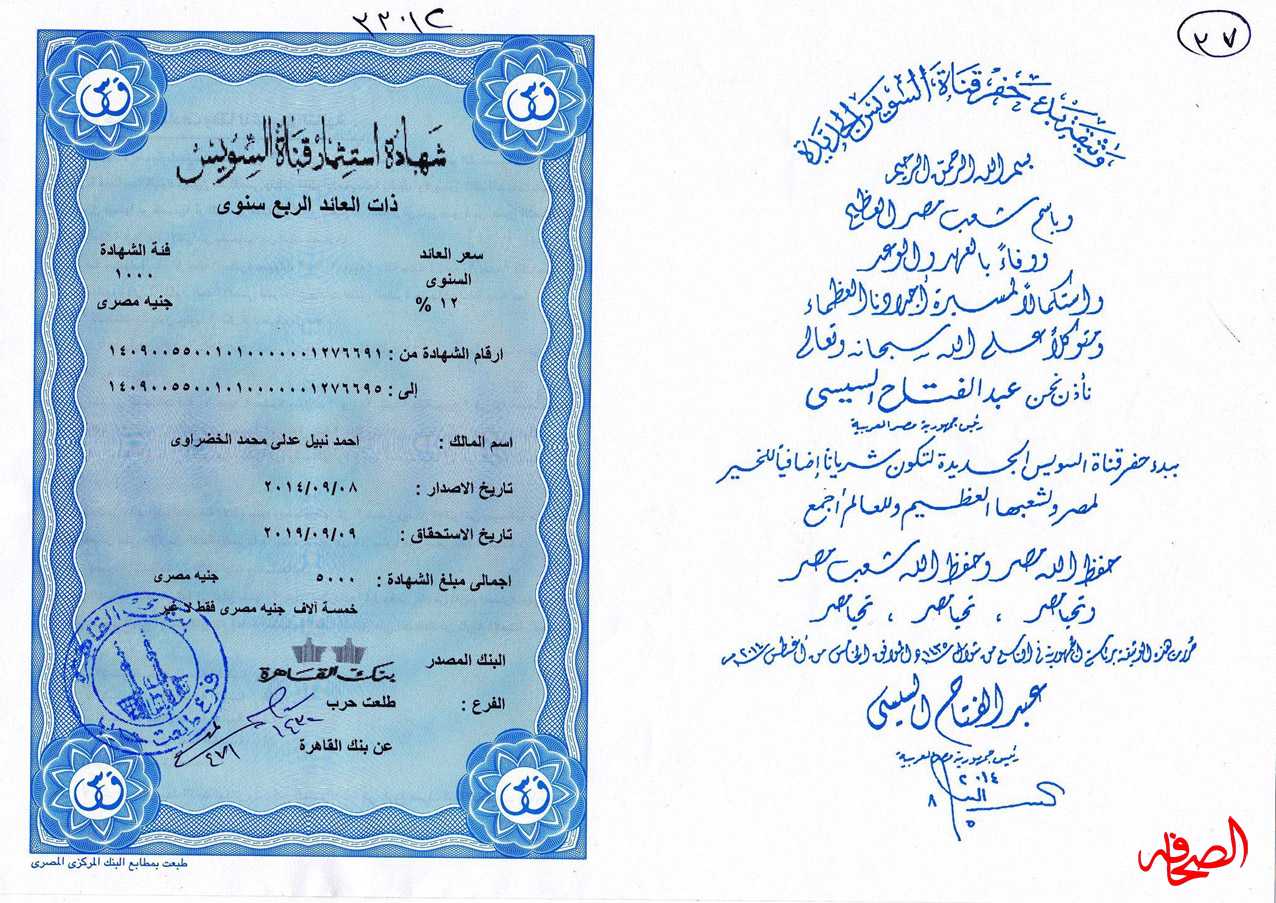 ٢٧
وثيقة بدء حفر قناة السويس الجديدة
بسم الله الرحمن الرحيم
وباسم شعب مصر العظيم
ووفاءً بالعهد والوعد
واستكمالاً لمسيرة أجدادنا العظماء
ومتوكلاً على الله سبحانه وتعالى
نأذن نحن عبد الفتاح السيسى
رئيس جمهورية مصر العربية
ببدء حفر قناة السويس الجديدة لتكون شرياناً إضافياً للخير
لمصر ولشعبها العظيم وللعالم أجمع
حفظ الله مصر وحفظ الله شعب مصر
وتحيا مصر ، تحيا مصر ، تحيا مصر
هذه الوثيقة برئاسة الجمهورية فى التاسع من شوال ١٤٣٥ والموافق الخامس من أغسطس
عبد الفتاح السيسى
رئيس جمهورية مصر العربية
٢٠١٤
٨
٥
الصحافة
شهادة استثمار قناة السويس
ذات العائد الربع سنوى
سعر العائد
السنوى
١٢ %
فئة الشهادة
١٠٠٠
جنيه مصرى
ارقام الشهادة من : ١٤٠٩٠٠٥٥٠٠١٠١٠٠٠٠٠٠٠١٢٧٦٦٩١
إلى : ١٤٠٩٠٠٥٥٠٠١٠١٠٠٠٠٠٠٠١٢٧٦٦٩٥
اسم المالك : احمد نبيل عدلى محمد الخضراوى
تاريخ الاصدار : ٢٠١٤/٠٩/٠٨
تاريخ الاستحقاق : ٢٠١٩/٠٩/٠٩
اجمالى مبلغ الشهادة : ٥٠٠٠ جنيه مصرى
خمسة آلاف جنيه مصرى فقط لا غير
البنك المصدر
بنك القاهرة
الفرع : طلعت حرب
عن بنك القاهرة
بنك القاهرة
فرع طلعت حرب
طبعت بمطابع البنك المركزى المصرى